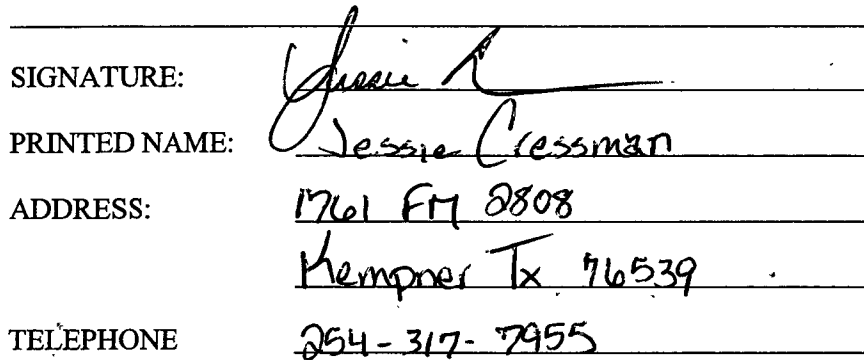 SIGNATURE: Jessie
PRINTED NAME: Jessie Cressman
ADDRESS: 1761 FM 2808
Kempner Tx 76539
TELEPHONE 254-317-7955